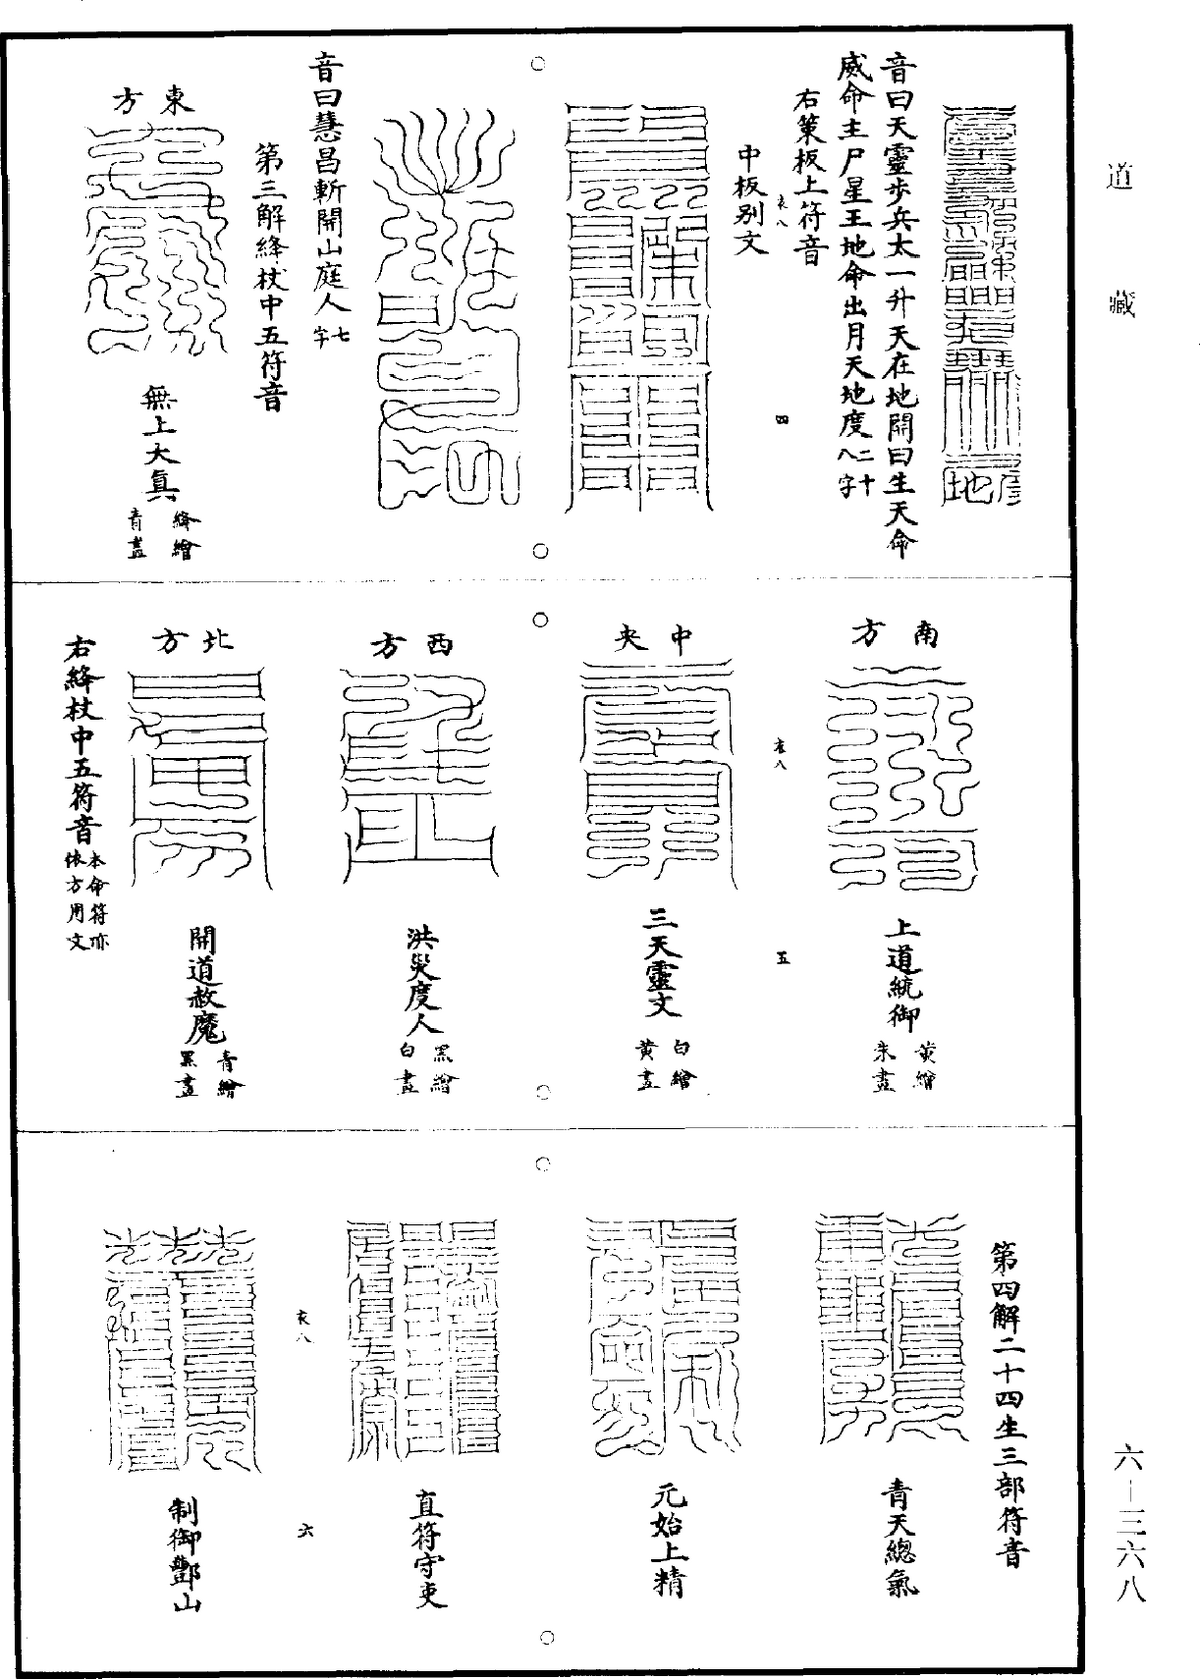 道藏
六—三六八
音曰天靈步兵太一升天在地開曰生天命
威命主尸星王地命出月天地度二十八字
右策板上符音
衣八
四
中板别文
音曰慧昌斬開山庭人七字
第三解絳杖中五符音
東方
無上大真絳繒青畫
南方
上道統御黃繒朱畫
衣八
五
中央
三天靈文白繒黃畫
西方
洪災度人黑繒白畫
北方
開道赦魔青繒黑畫
右絳杖中五符音本命符亦依方用文
第四解二十四生三部符音
青天總氣
元始上精
直符守吏
衣八
六
制御酆山